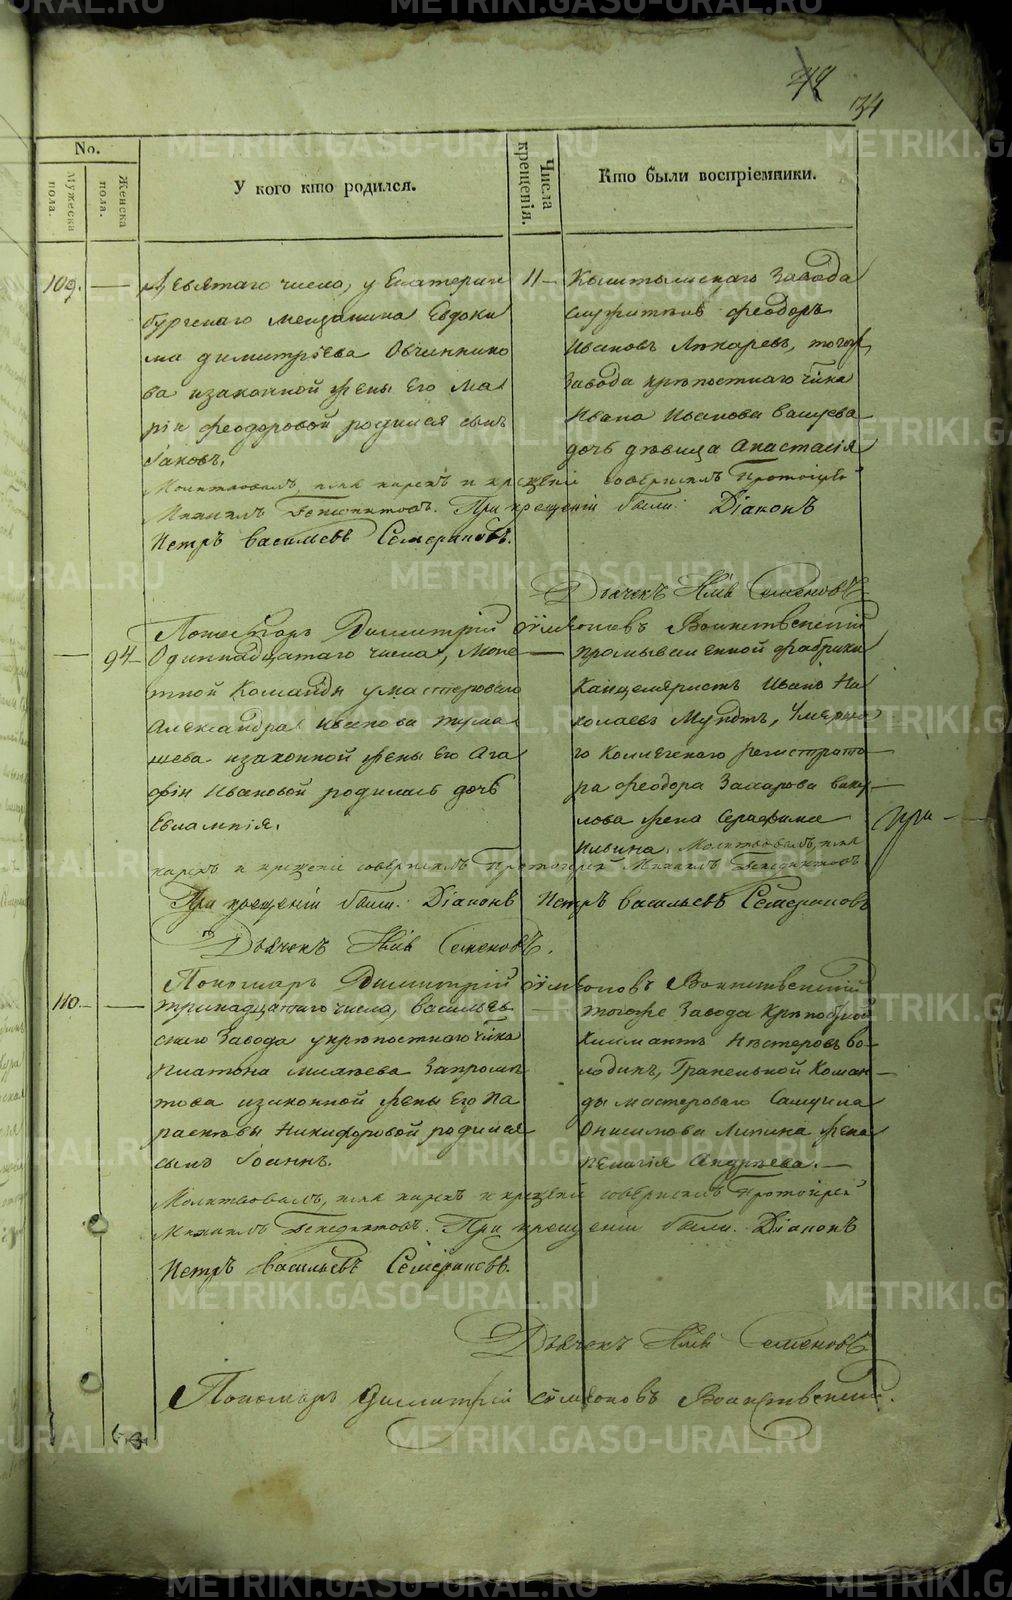 34
No.
Мужеска пола.
Женска пола.
У кого кто родился.
Числа крещенія.
Кто были воспріемники.
109.
Девятаго числа, у Екатерин
бургскаго мещанина Евдоки
ма димитрїева Овчиннико
ва изаконной жены его Ма
ріи феодоровой родился сынъ
Іаковъ.
11
Кыштымскаго Завода
служитель феодоръ
Ивановъ
завода крѣпостнаго
Ивана Иванова
дочь дѣвица Анастасія
Молитвовалъ, имя нарекъ и крещеніе совершилъ Протоіерей
Михаилъ Бенедиктовъ. При крещеніи были: Діаконъ
Петръ Васильевъ Семерниковъ.
Дьячекъ Семеновъ
Пономарь Димитрій Воинственскій
94
Одиннадцатаго числа, Моне
тной Команды умастероваго
Александра Иванова тума
шева изаконной жены его Ага
фіи Ивановой родилась дочь
Евлампія.
промываленной фабрики
Канцеляристъ Иванъ Ни
колаевъ Мундтъ, Умерша
го Коллежскаго регистрато
ра феодора Захарова вику
лова жена Серафима
Ильина. Молитвовалъ, имя
при
нарекъ и крещеніе совершилъ Протоіерей Михаилъ Бенедиктовъ
При крещеніи были: Діаконъ Петръ Васильевъ Семерниковъ
Дьячекъ Семеновъ.
Пономарь Димитрій Воинственскій
110
тринадцатаго числа, Васильев
скаго Завода укрѣпостнаго
Платона
това изаконной жены Его Па
расковьи Никифоровой родился
сынъ Іоаннъ.
тогоже Завода Крѣпостной
Климантъ Нестеровъ Во
лодинъ, Гранильной Коман
ды мастероваго Самуила
Онисимова Липина жена
Пелагія Андреева.
Молитвовалъ, имя нарекъ и крещеніе совершилъ Протоіерей
Михаилъ Бенедиктовъ. При крещеніи были: Діаконъ
Петръ Васильевъ Семерниковъ.
Дьячекъ Семеновъ
Пономарь Димитрій Воинственскій.
METRIKI.GASO-URAL.RU